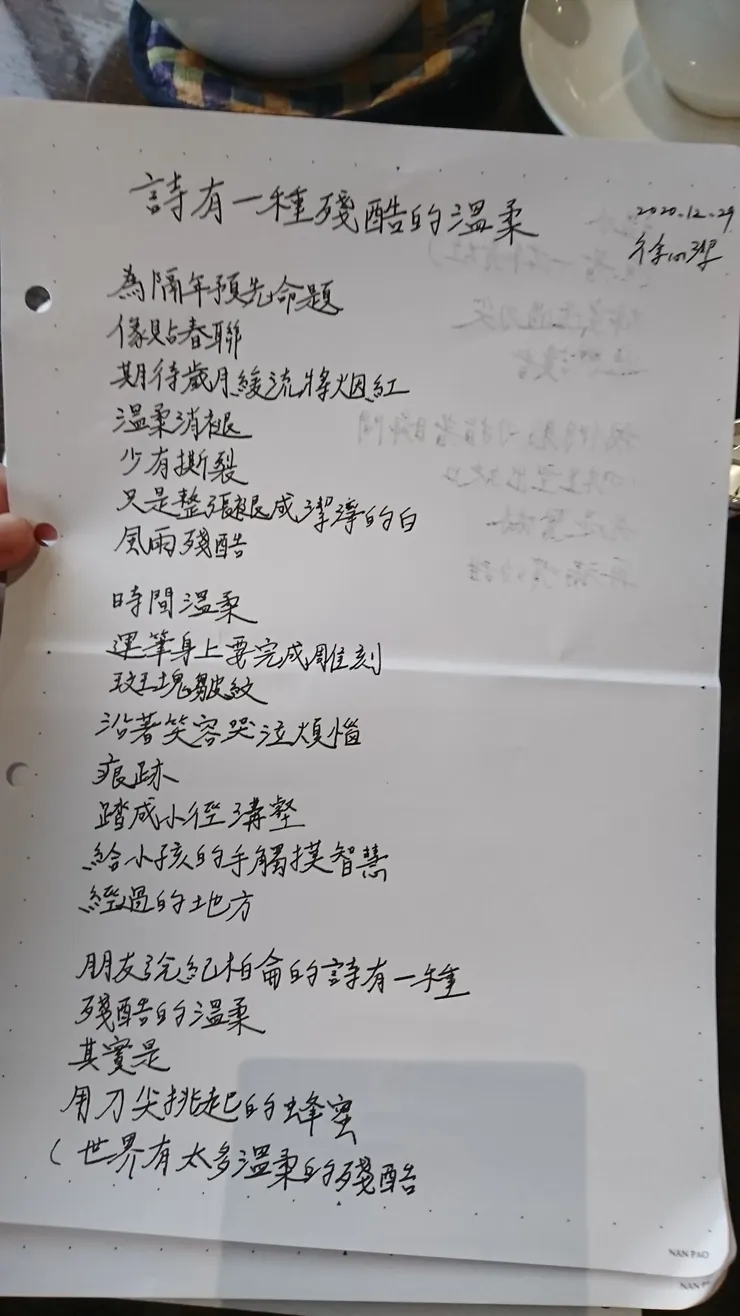 詩有一種殘酷的溫柔
2020.12.29
徐
為隔年預先命題
像貼春聯
期待歲月緩流將烟紅
溫柔消褪
少有撕裂
只是整張褪成潔淨的白
風雨殘酷
時間溫柔
運筆身上要完成雕刻
斑塊皺紋
沿著笑容哭泣煩惱
痕跡
踏成小徑溝壑
給小孩的手觸摸智慧
經過的地方
朋友說紀柏倫的詩有一種
殘酷的溫柔
其實是
用刀尖挑起的蜂蜜
(世界有太多溫柔的殘酷
NAN PAO
NAN P